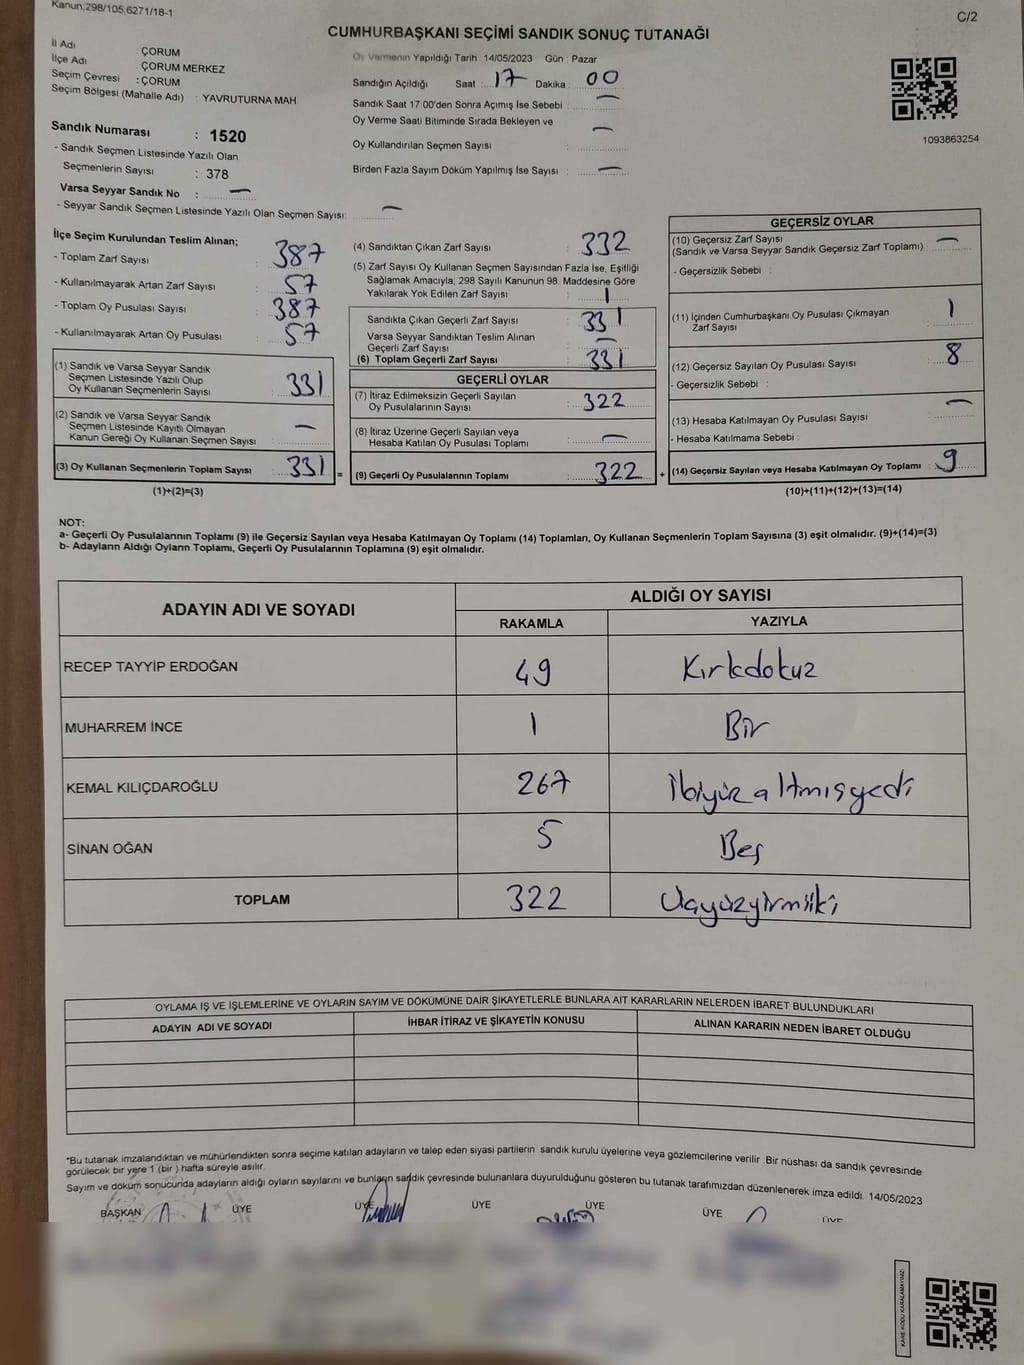 Kanun,298/105,6271/18-1
C/2
CUMHURBAŞKANI SEÇİMİ SANDIK SONUÇ TUTANAĞI
İl Adı : ÇORUM
İlçe Adı : ÇORUM MERKEZ
Seçim Çevresi : ÇORUM
Seçim Bölgesi (Mahalle Adı) : YAVRUTURNA MAH
Oy Vermenin Yapıldığı Tarih :14/05/2023 Gün : Pazar
Sandığın Açıldığı Saat : 17 Dakika : 00
Sandık Saat 17:00'den Sonra Açımış İse Sebebi : —
Oy Verme Saati Bitiminde Sırada Bekleyen ve
Oy Kullandırılan Seçmen Sayısı : —
Birden Fazla Sayım Döküm Yapılmış İse Sayısı : —
1093863254
Sandık Numarası : 1520
- Sandık Seçmen Listesinde Yazılı Olan
Seçmenlerin Sayısı : 378
Varsa Seyyar Sandık No : —
- Seyyar Sandık Seçmen Listesinde Yazılı Olan Seçmen Sayısı: —
İlçe Seçim Kurulundan Teslim Alınan;
- Toplam Zarf Sayısı : 387
- Kullanılmayarak Artan Zarf Sayısı : 57
- Toplam Oy Pusulası Sayısı : 387
- Kullanılmayarak Artan Oy Pusulası : 57
(1) Sandık ve Varsa Seyyar Sandık
Seçmen Listesinde Yazılı Olup
Oy Kullanan Seçmenlerin Sayısı : 331
(2) Sandık ve Varsa Seyyar Sandık
Seçmen Listesinde Kayıtlı Olmayan
Kanun Gereği Oy Kullanan Seçmen Sayısı : —
(3) Oy Kullanan Seçmenlerin Toplam Sayısı : 331 =
(1)+(2)=(3)
(4) Sandıktan Çıkan Zarf Sayısı : 332
(5) Zarf Sayısı Oy Kullanan Seçmen Sayısından Fazla İse, Eşitliği
Sağlamak Amacıyla, 298 Sayılı Kanunun 98. Maddesine Göre
Yakılarak Yok Edilen Zarf Sayısı : 1
Sandıkta Çıkan Geçerli Zarf Sayısı : 331
Varsa Seyyar Sandıktan Teslim Alınan
Geçerli Zarf Sayısı : —
(6) Toplam Geçerli Zarf Sayısı : 331
GEÇERLİ OYLAR
(7) İtiraz Edilmeksizin Geçerli Sayılan
Oy Pusulalarının Sayısı : 322
(8) İtiraz Üzerine Geçerli Sayılan veya
Hesaba Katılan Oy Pusulası Toplamı : —
(9) Geçerli Oy Pusulalarının Toplamı : 322 +
GEÇERSİZ OYLAR
(10) Geçersiz Zarf Sayısı
(Sandık ve Varsa Seyyar Sandık Geçersiz Zarf Toplamı) : —
- Geçersizlik Sebebi :
(11) İçinden Cumhurbaşkanı Oy Pusulası Çıkmayan
Zarf Sayısı : 1
(12) Geçersiz Sayılan Oy Pusulası Sayısı : 8
- Geçersizlik Sebebi :
(13) Hesaba Katılmayan Oy Pusulası Sayısı : —
- Hesaba Katılmama Sebebi :
(14) Geçersiz Sayılan veya Hesaba Katılmayan Oy Toplamı : 9
(10)+(11)+(12)+(13)=(14)
NOT:
a- Geçerli Oy Pusulalarının Toplamı (9) ile Geçersiz Sayılan veya Hesaba Katılmayan Oy Toplamı (14) Toplamları, Oy Kullanan Seçmenlerin Toplam Sayısına (3) eşit olmalıdır. (9)+(14)=(3)
b- Adayların Aldığı Oyların Toplamı, Geçerli Oy Pusulalarının Toplamına (9) eşit olmalıdır.
ADAYIN ADI VE SOYADI
ALDIĞI OY SAYISI
RAKAMLA YAZIYLA
RECEP TAYYİP ERDOĞAN 49 Kırkdokuz
MUHARREM İNCE 1 Bir
KEMAL KILIÇDAROĞLU 267 İkiyüzaltmışyedi
SİNAN OĞAN 5 Beş
TOPLAM 322 Üçyüzyirmiiki
OYLAMA İŞ VE İŞLEMLERİNE VE OYLARIN SAYIM VE DÖKÜMÜNE DAİR ŞİKAYETLERLE BUNLARA AİT KARARLARIN NELERDEN İBARET BULUNDUKLARI
ADAYIN ADI VE SOYADI İHBAR İTİRAZ VE ŞİKAYETİN KONUSU ALINAN KARARIN NEDEN İBARET OLDUĞU
*Bu tutanak imzalandıktan ve mühürlendikten sonra seçime katılan adayların ve talep eden siyasi partilerin sandık kurulu üyelerine veya gözlemcilerine verilir. Bir nüshası da sandık çevresinde
görülecek bir yere 1 (bir) hafta süreyle asılır.
Sayım ve döküm sonucunda adayların aldığı oyların sayılarını ve bunların sandık çevresinde bulunanlara duyurulduğunu gösteren bu tutanak tarafımızdan düzenlenerek imza edildi. 14/05/2023
BAŞKAN ÜYE ÜYE ÜYE ÜYE ÜYE ÜYE
KARE KODU KARALAMAYINIZ!